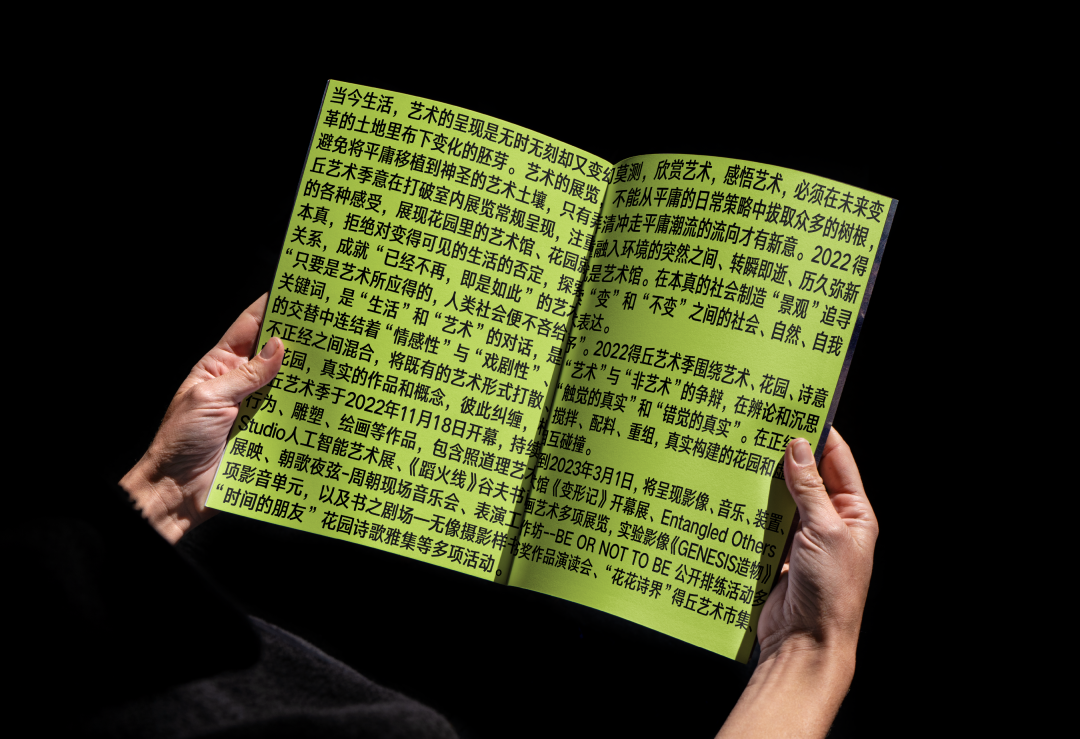 当今生活，艺术的呈现是无时无刻却又变幻莫测，欣赏艺术，感悟艺术，必须在未来变
革的土地里布下变化的胚芽。艺术的展览不能从平庸的日常策略中拔取众多的树根，
避免将平庸移植到神圣的艺术土壤，只有清冲走平庸潮流的流向才有新意。2022得
丘艺术季意在打破室内展览常规呈现，注重融入环境的突然之间、转瞬即逝、历久弥新
的各种感受，展现花园里的艺术馆、花园就是艺术馆。在本真的社会制造“景观”追寻
本真，拒绝对变得可见的生活的否定，探索“变”和“不变”之间的社会、自然、自我
关系，成就“已经不再，即是如此”的艺术表达。
“只要是艺术所应得的，人类社会便不吝给予”。2022得丘艺术季围绕艺术、花园、诗意
关键词，是“生活”和“艺术”的对话，是“艺术”与“非艺术”的争辩，在辨论和沉思
的交替中连结着“情感性”与“戏剧性”、“触觉的真实”和“错觉的真实”。在正经
不正经之间混合，将既有的艺术形式打散、搅拌、配料、重组，真实构建的花园和
花园，真实的作品和概念，彼此纠缠、相互碰撞。
丘艺术季于2022年11月18日开幕，持续到2023年3月1日，将呈现影像、音乐、装置、
行为、雕塑、绘画等作品，包含照道理艺术馆《变形记》开幕展、Entangled Others
Studio人工智能艺术展、《蹈火线》谷夫书画艺术多项展览，实验影像《GENESIS造物》
展映、朝歌夜弦-周朝现场音乐会、表演工作坊--BE OR NOT TO BE 公开排练活动多
项影音单元，以及书之剧场—无像摄影样书奖作品演读会、“花花诗界”得丘艺术市集、
“时间的朋友”花园诗歌雅集等多项活动。